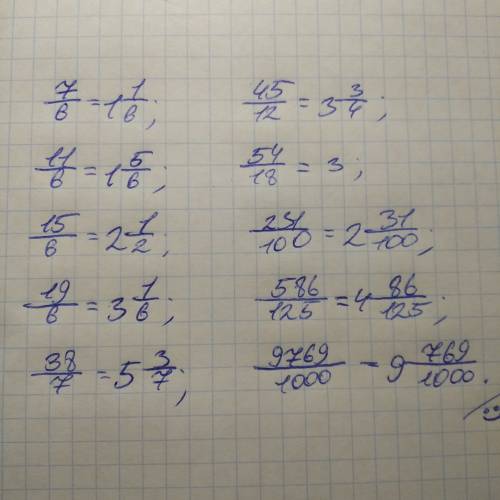 7/6 = 1 1/6;
11/6 = 1 5/6;
15/6 = 2 1/2;
19/6 = 3 1/6;
38/7 = 5 3/7;
45/12 = 3 3/4;
54/18 = 3;
231/100 = 2 31/100;
586/125 = 4 86/125;
9769/1000 = 9 769/1000.